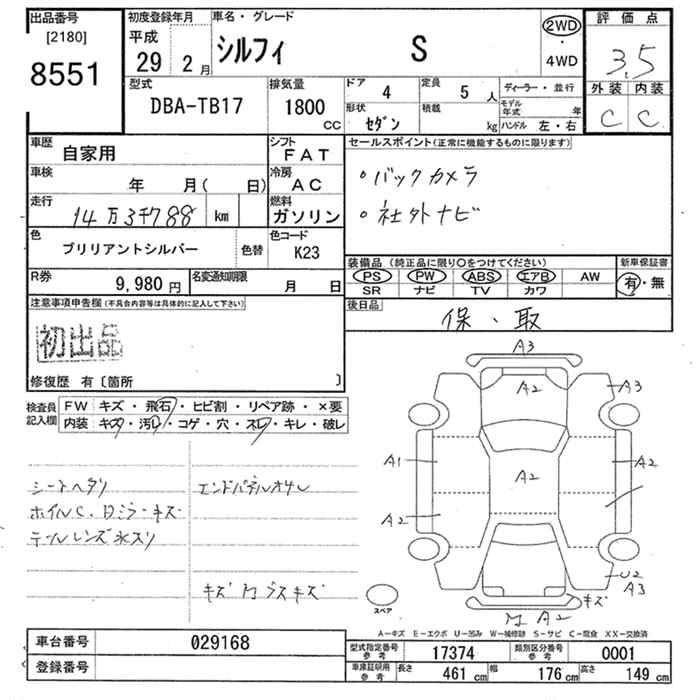 出品番号
[2180]
8551
初度登録年月
平成
29年 2月
車名・グレード
シルフィ S
2WD
・
4WD
評価点
3.5
外装 内装
C C
型式
DBA-TB17
排気量
1800
CC
ドア
4
定員
5 人
形状
セダン
積載
kg
ディーラー・並行
モデル年式 年
ハンドル 左・右
車歴
自家用
シフト
FAT
車検
年 月( 日)
冷房
AC
走行
14万3千788 km
燃料
ガソリン
色
ブリリアントシルバー
色替
色コード
K23
R券
9,980 円
名変通知期限
月 日
セールスポイント(正常に機能するものに限ります)
・バックカメラ
・社外ナビ
装備品 (純正品に限り○をつけてください)
PS PW ABS エアB AW
SR ナビ TV カワ
新車保証書
有・無
後日品
保・取
注意事項申告欄(不具合内容等は具体的に記入して下さい)
初出品
修復歴 有〔箇所 〕
検査員記入欄
FW キズ・飛石・ヒビ割・リペア跡・×要
内装 キズ・汚れ・コゲ・穴・スレ・キレ・破レ
シートヘタリ
ホイルC、
テールレンズ水入り
キズ
A3
A2
A3
A1
A2
A2
A2
U2
A3
キズ
A2
スペア
A-キズ E-エクボ U-凹み W-補修跡 S-サビ C-腐食 XX-交換済
車台番号
029168
登録番号
型式指定番号
参考
17374
類別区分番号
参考
0001
車庫証明用
参考
長さ 461 cm 幅 176 cm 高さ 149 cm